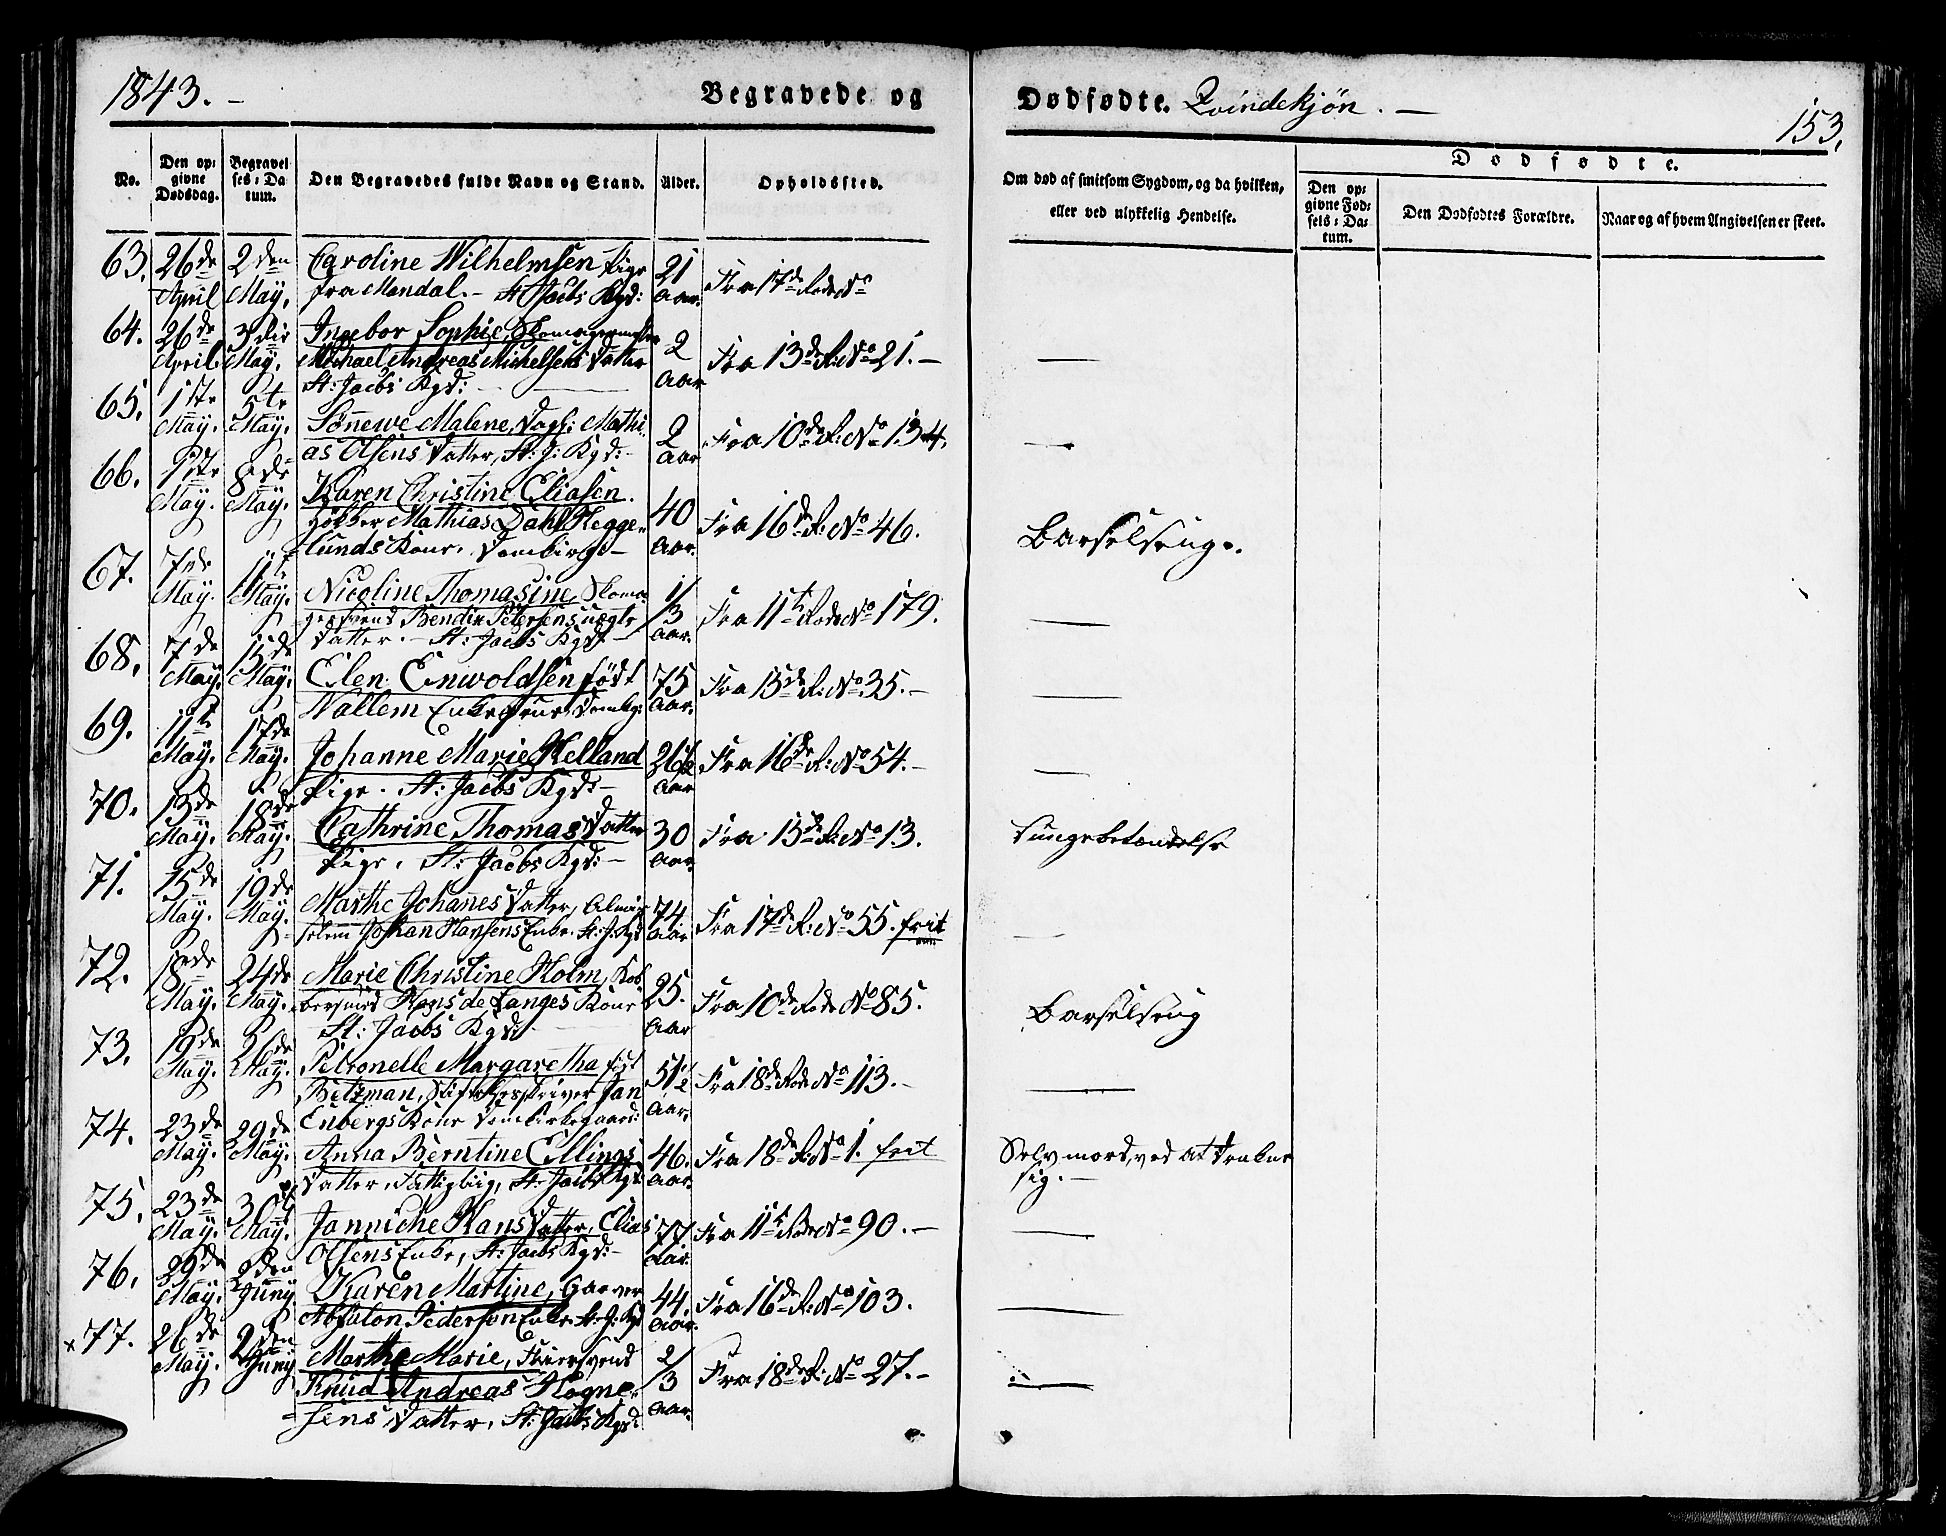 1843. –
Begravede og
Dødfødte. Qvindekjøn. —
153.
No.
Den opgivne Dødsdag.
Begravelses-Datum.
Den Begravedes fulde Navn og Stand.
Alder.
Opholdssted.
Om død af smitsom Sygdom, og da hvilken,
eller ved ulykkelig Hendelse.
Dødfødte.
Den opgivne Fødsels-Datum.
Den Dødfødtes Forældre.
Naar og af hvem Angivelsen er skeet.
63. 26de April 2den May. Caroline Wilhelmsen, Pige
fra Mandal. – St: Jacobs Kgd: 21 Aar. Fra 17de Rode No
64. 26de April 3die May. Ingebor Sophie, Skomagermester
Michael Andreas Michelsens Datter
St: Jacobs Kgd: – 2 Aar Fra 13de R: No 21. –
65. 1ste May. 5te May. Sønnewe Malene, Dagl: Mathi-
as Olsens Datter, St: J: Kgd: – 2 Aar Fra 10de R: No 134.
66. 1ste May. 8de May. Karen Christine Eliasen.
Høker Mathias Dahl Hegge-
lunds Kone. Domkirke – 40 Aar. Fra 16de R: No 46. Barselseng.
67. 7de May. 11te May. Nicoline Thomasine, Skoma-
gersvend Bendix Petersens uægte
Datter. – St: Jacobs Kgd – 1/3 Aar. Fra 11te Rode No 179.
68. 7de May. 15de May. Elen Enwoldsen født
Wallem Enkefrue, Domkg: 75 Aar. Fra 15de R: No 35. –
69. 11te May. 17de May. Johanne Marie Helland
Pige. St: Jacobs Kgd: – 26½ Aar Fra 16de R: No 54. –
70. 13de May. 18de May. Cathrine Thomas Datter
Pige, St: Jacobs Kgd: – 30 Aar. Fra 15de R: No 13. Lungebetændelse
71. 15de May. 19de May. Marthe Johannes Datter, Almis-
selem Johan Hansens Enke. St: J: Kgd 74 Aar Fra 17de R: No 55. frit
72. 18de May. 24de May. Marie Christine Holm, Kob-
bersmed Hans de Langes Kone
St: Jacobs Kgd: 25. Aar Fra 10de Rode No 85. Barselseng
73. 19de May. 26de May. Petronelle Margaretha født
Beltzman, Jan
Enbergs Kone Domkirkegaard: 51½ Aar. Fra 18de Rode No 113. –
74. 23de May. 29de May. Anna Berntine Ellings
Datter, Fattigliig, St: Jacobs Kgd 46. Aar. Fra 18de R: No 1. frit Selvmord, ved at drukne
sig. –
75. 23de May. 30te May. Janniche Hans Datter, Elias
Olsens Enke, St: Jacobs Kgd: – 77 Aar. Fra 11te Rode No 90. –
76. 29de May. 2den Juny Karen Martine, Garver
Absalon Pedersen Enke St: J: Kgd 44. Aar. Fra 16de R: No 103.
× 77. 26de May. 2den Juny Marthe Marie, Snersvend
Knud Andreas Hogne-
sens Datter, St: Jacobs Kgd: 2/3 Aar. Fra 18de R: No 27. –